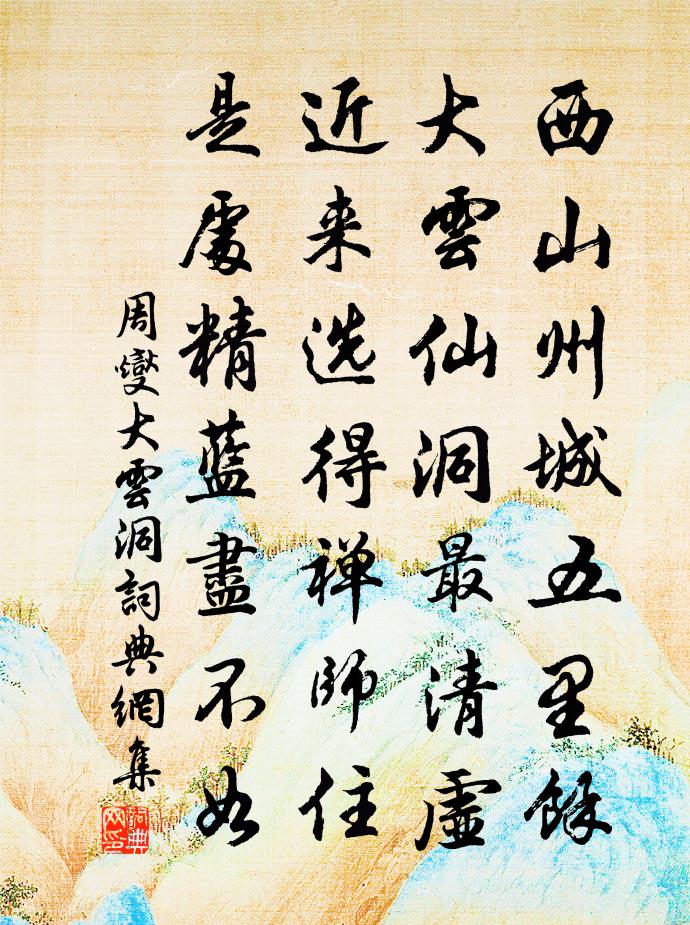 西山州城五里餘
大雲仙洞最清虛
近来选得禅師住
是處精藍盡不如
周燮大雲洞詞典網集
詞典网印